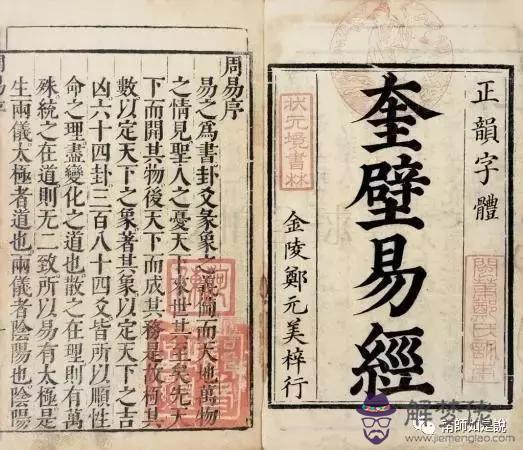 正韻字體
奎壁易經
狀元境書林
金陵鄭元美梓行
周易序
易之爲書卦爻彖象之義備而天地萬物
之情見聖人之憂天下來世其至矣先天
下而開其物後天下而成其務是故極其
數以定天下之象著其象以定天下之吉
凶六十四卦三百八十四爻皆所以順性
命之理盡變化之道也散之在理則有萬
殊統之在道則无二致所以易有太極是
生兩儀太極者道也兩儀者陰陽也陰陽
周易序
解梦佬
www.jiemenglao.com